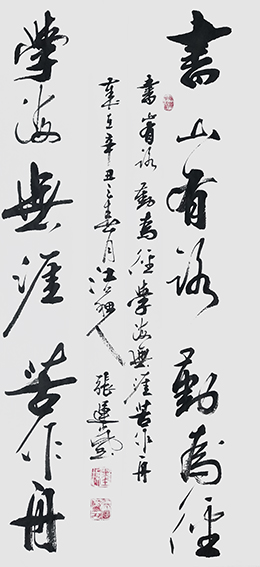 書山有路勤為徑
書山有路勤為徑學海無涯苦作舟
辛丑春月江人張運
學海無涯苦作舟